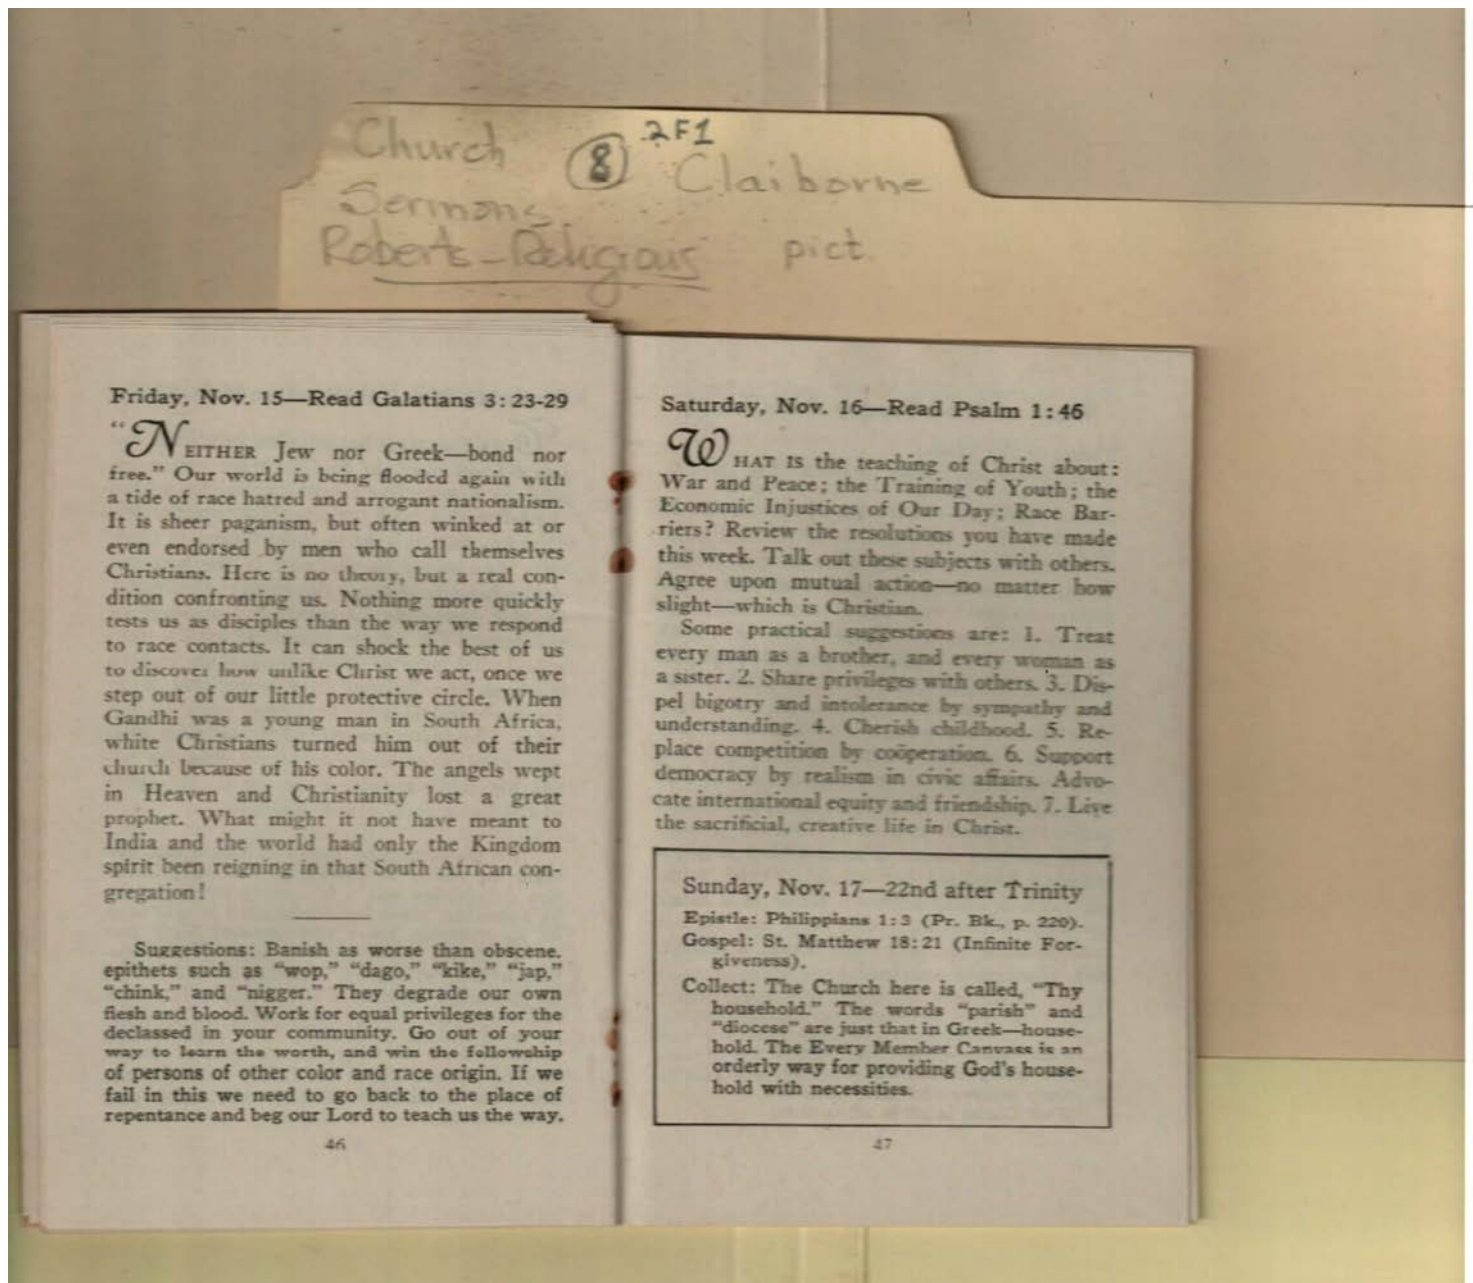 Church
8
2F1
Claiborne
Sermons
Roberts-Religious
pict
Friday, Nov. 15—Read Galatians 3:23-29
"NEITHER Jew nor Greek—bond nor
free." Our world is being flooded again with
a tide of race hatred and arrogant nationalism.
It is sheer paganism, but often winked at or
even endorsed by men who call themselves
Christians. Here is no theory, but a real con-
dition confronting us. Nothing more quickly
tests us as disciples than the way we respond
to race contacts. It can shock the best of us
to discover how unlike Christ we act, once we
step out of our little protective circle. When
Gandhi was a young man in South Africa,
white Christians turned him out of their
church because of his color. The angels wept
in Heaven and Christianity lost a great
prophet. What might it not have meant to
India and the world had only the Kingdom
spirit been reigning in that South African con-
gregation!
Suggestions: Banish as worse than obscene,
epithets such as "wop," "dago," "kike," "jap,"
"chink," and "nigger." They degrade our own
flesh and blood. Work for equal privileges for the
declassed in your community. Go out of your
way to learn the worth, and win the fellowship
of persons of other color and race origin. If we
fail in this we need to go back to the place of
repentance and beg our Lord to teach us the way.
46
Saturday, Nov. 16—Read Psalm 1:46
WHAT IS the teaching of Christ about:
War and Peace; the Training of Youth; the
Economic Injustices of Our Day; Race Bar-
riers? Review the resolutions you have made
this week. Talk out these subjects with others.
Agree upon mutual action—no matter how
slight—which is Christian.
Some practical suggestions are: 1. Treat
every man as a brother, and every woman as
a sister. 2. Share privileges with others. 3. Dis-
pel bigotry and intolerance by sympathy and
understanding. 4. Cherish childhood. 5. Re-
place competition by coöperation. 6. Support
democracy by realism in civic affairs. Advo-
cate international equity and friendship. 7. Live
the sacrificial, creative life in Christ.
Sunday, Nov. 17—22nd after Trinity
Epistle: Philippians 1:3 (Pr. Bk., p. 220).
Gospel: St. Matthew 18:21 (Infinite For-
giveness).
Collect: The Church here is called, "Thy
household." The words "parish" and
"diocese" are just that in Greek—house-
hold. The Every Member Canvass is an
orderly way for providing God's house-
hold with necessities.
47